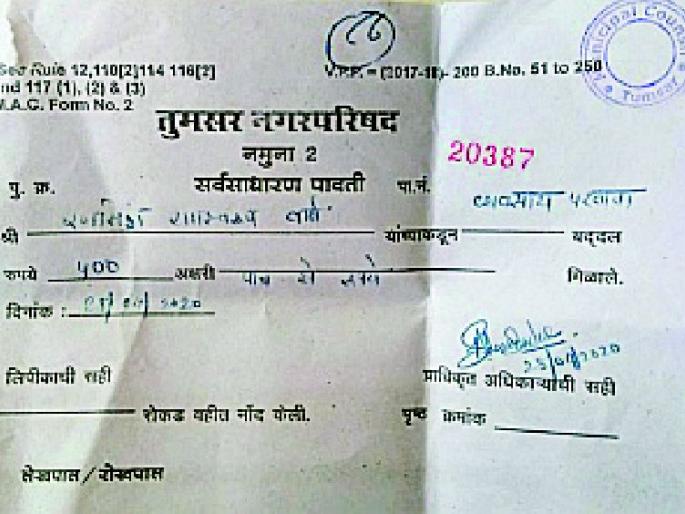 See Rule 12,110[2]114 116[2]
nd 117 (1), (2) & (3)
M.A.G. Form No. 2
V.P.P. – (2017-18)- 200 B.No. 51 to 250
Municipal Council
Tumsar
तुमसर नगरपरिषद
नमुना 2
20387
पु. क्र.
सर्वसाधारण पावती
पा.नं.
व्यवसाय परवाना
श्री
यांच्याकडून
बद्दल
रुपये 500 अक्षरी पाच शे रुपये मिळाले.
दिनांक : 2020
25/01/2020
लिपीकाची सही
प्राधिकृत अधिकाऱ्याची सही
रोकड वहीत नोंद केली.
पृष्ठ क्रमांक
लेखपाल / रोखपाल